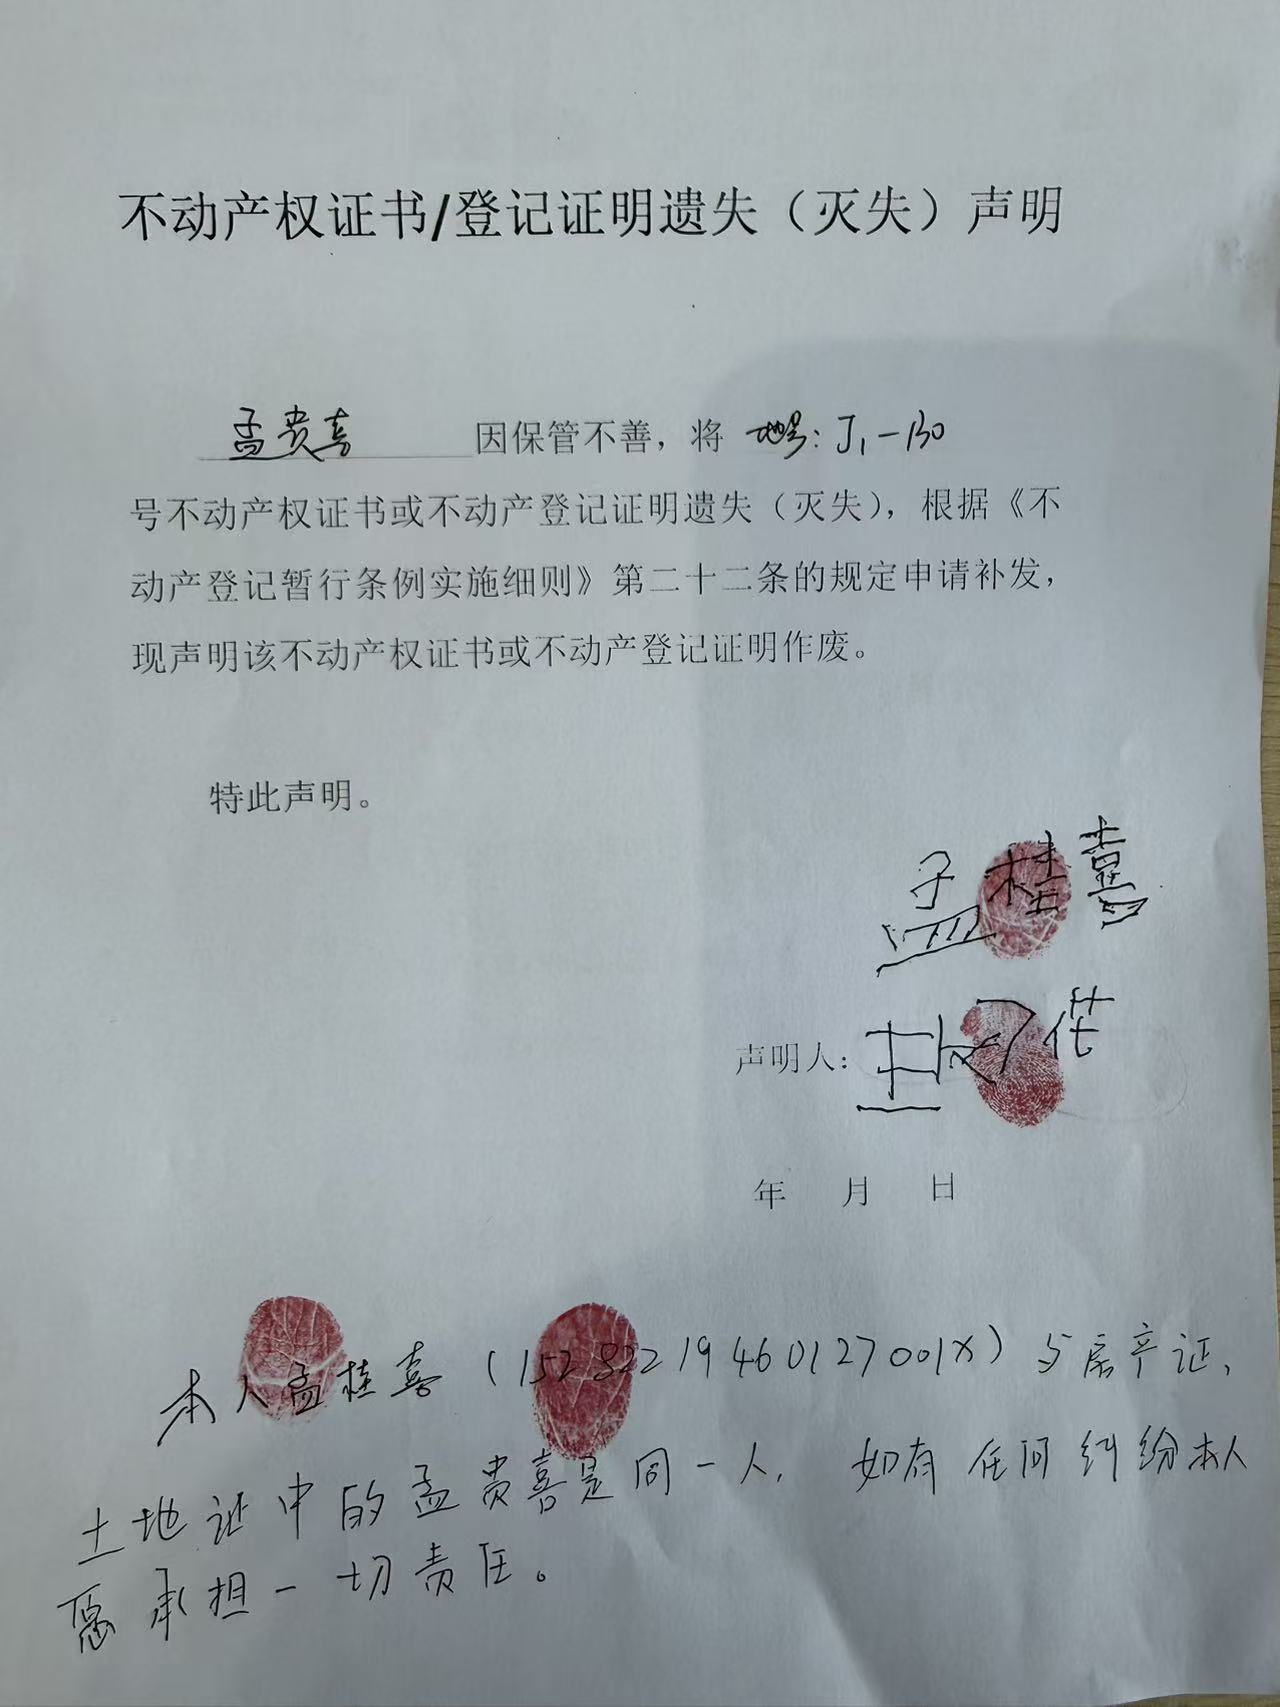 不动产权证书/登记证明遗失（灭失）声明
孟贵喜 因保管不善，将 地号：J1-130
号不动产权证书或不动产登记证明遗失（灭失），根据《不
动产登记暂行条例实施细则》第二十二条的规定申请补发，
现声明该不动产权证书或不动产登记证明作废。
特此声明。
孟桂喜
声明人：
年 月 日
本人孟桂喜（15282219460127001X）与房产证，
土地证中的孟贵喜是同一人，如有任何纠纷本人
愿承担一切责任。